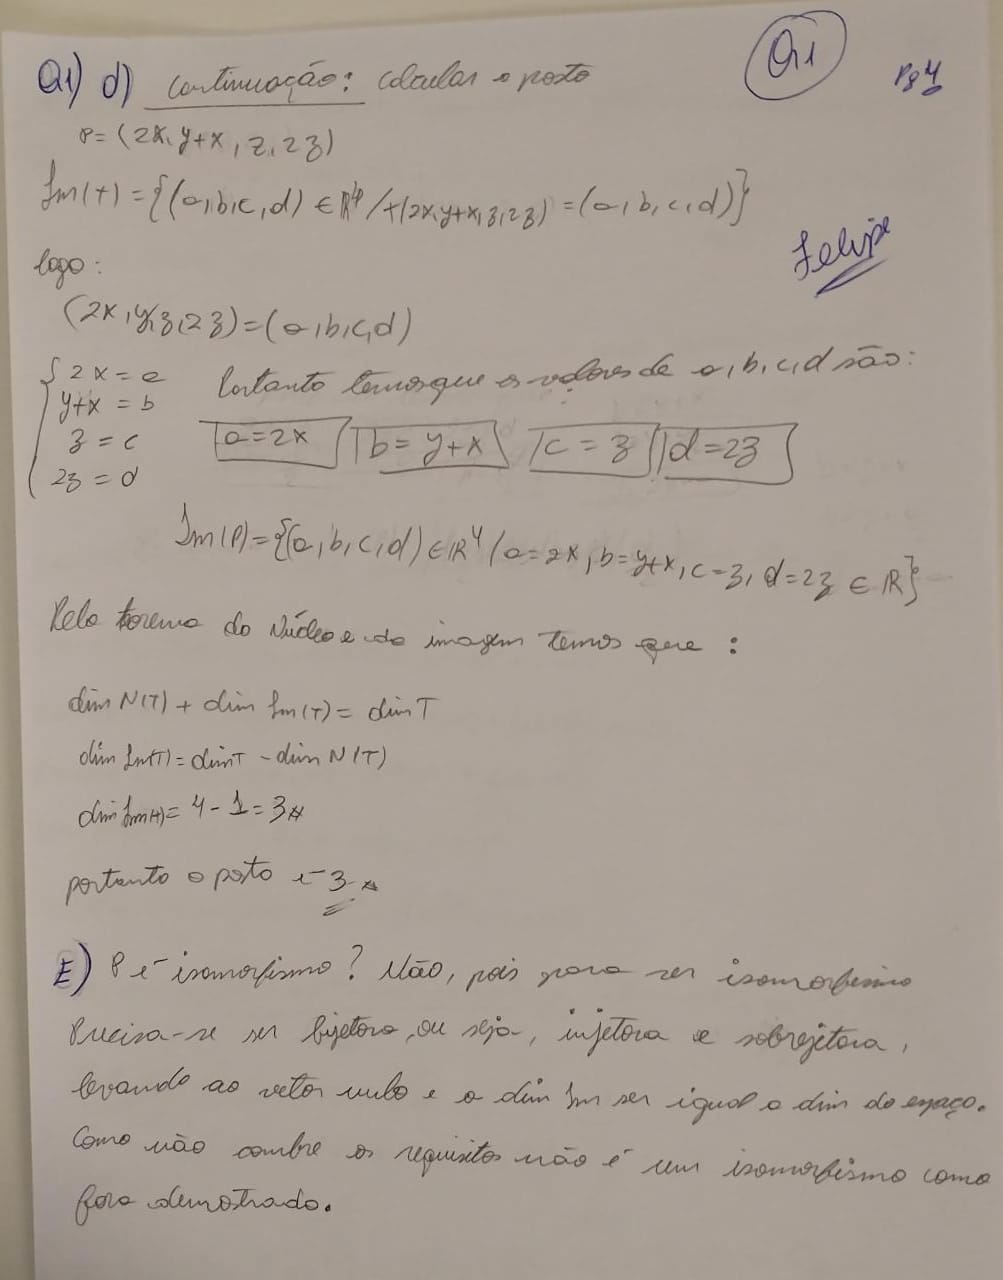 Q1) d) continuação: calcular o posto
Q1
Pg 4
P=(2x, y+x, z, 2z)
Im(T)={(a,b,c,d) ∈ R⁴/T(2x,y+x,z,2z)=(a,b,c,d)}
Felipe
logo:
(2x,y,z,2z)=(a,b,c,d)
{ 2x=a
y+x=b
z=c
2z=d
Portanto temos que os valores de a,b,c,d são:
a=2x b=y+x c=z d=2z
Im(P)={(a,b,c,d) ∈ R⁴/a=2x, b=y+x, c=z, d=2z ∈ R}
Pelo teorema do Núcleo e da imagem temos que:
dim N(T) + dim Im(T) = dim T
dim Im(T)= dim T - dim N(T)
dim Im(T)= 4-1=3
portanto o posto é 3
E) P é isomorfismo? Não, pois para ser isomorfismo
Precisa-se ser bijetora, ou seja, injetora e sobrejetora,
levando ao vetor nulo e a dim Im ser igual a dim do espaço.
Como não cumbre os requisitos não é um isomorfismo como
fora demostrado.